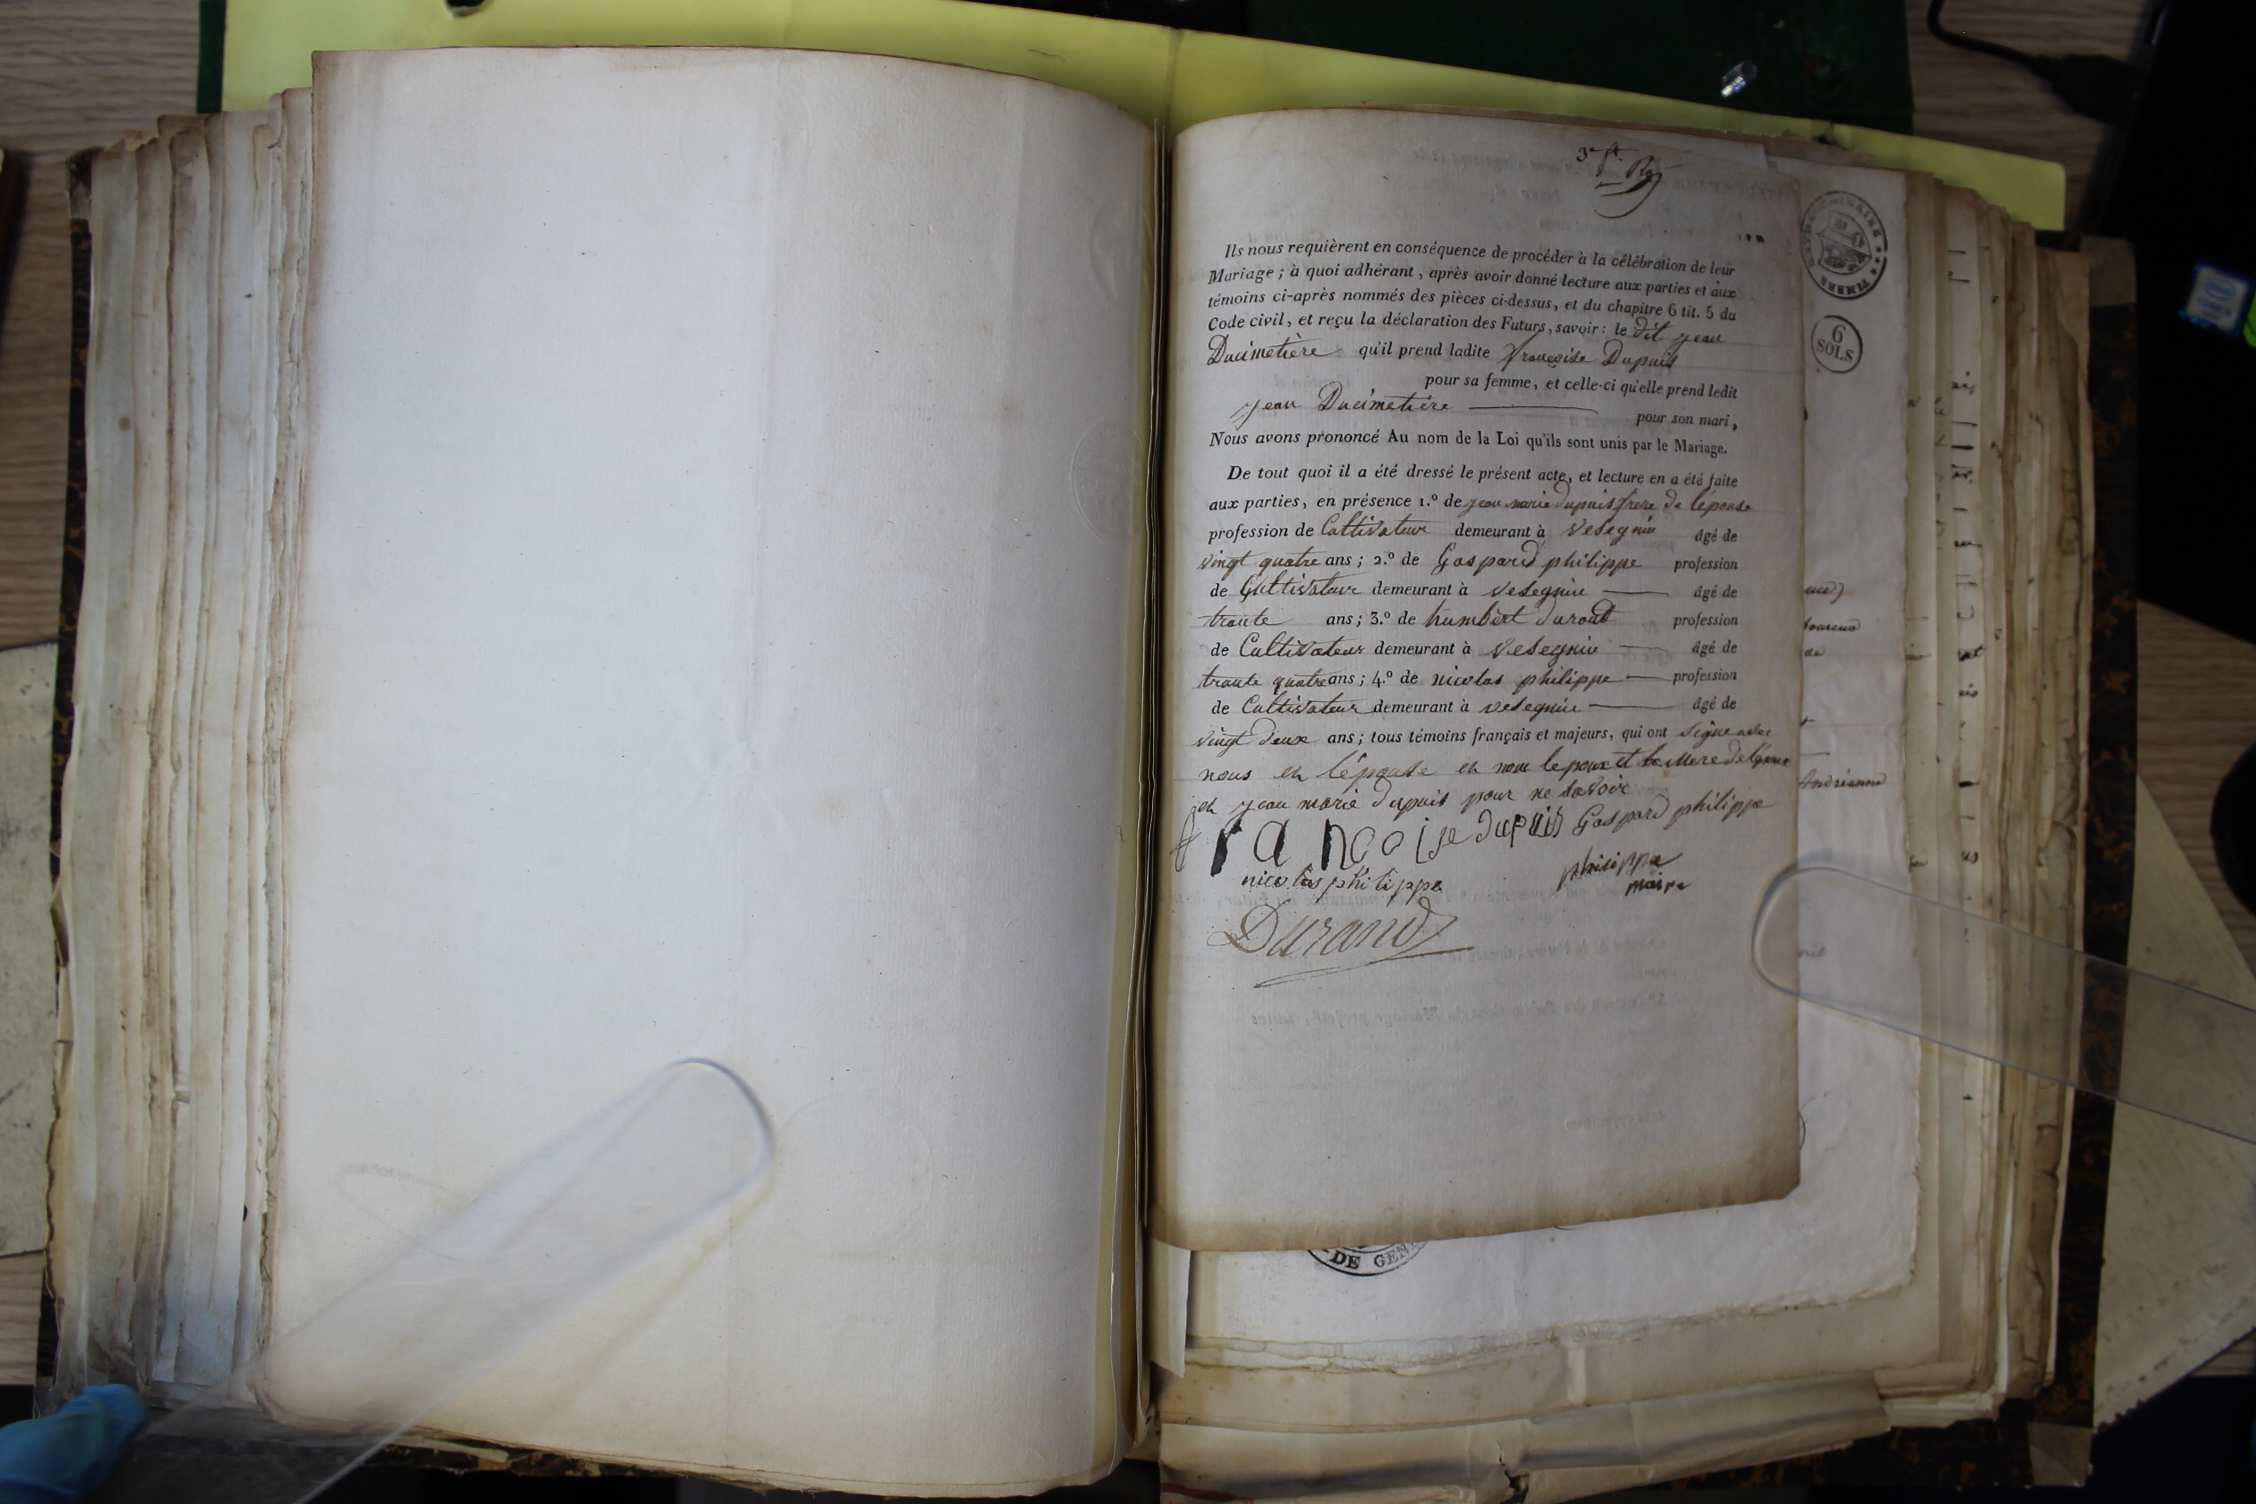 3e ft.
Ils nous requièrent en conséquence de procéder à la célébration de leur
Mariage ; à quoi adhérant, après avoir donné lecture aux parties et aux
témoins ci-après nommés des pièces ci-dessus, et du chapitre 6 tit. 5 du
Code civil, et reçu la déclaration des Futurs, savoir : le dit jean
Ducimetière qu'il prend ladite françoise Dupuis
pour sa femme, et celle-ci qu'elle prend ledit
jean Ducimetière pour son mari,
Nous avons prononcé Au nom de la Loi qu'ils sont unis par le Mariage.
De tout quoi il a été dressé le présent acte, et lecture en a été faite
aux parties, en présence 1.º de jean marie dupuis frere de lépouse
profession de Cultivateur demeurant à vesegnin âgé de
vingt quatre ans ; 2.º de Gaspard philippe profession
de Cultivateur demeurant à vesegnin âgé de
trante ans ; 3.º de humbert durand profession
de Cultivateur demeurant à vesegnin âgé de
trante quatre ans ; 4.º de nicolas philippe profession
de Cultivateur demeurant à vesegnin âgé de
vingt deux ans ; tous témoins français et majeurs, qui ont signé avec
nous et l'épouse et non lepoux et la Mere de
et jean marie dupuis pour ne savoir
francoise dupuis Gaspard philippe
nicolas philippe
philippe
maire
Durand
TIMBRE
6
SOLS
DE GEN